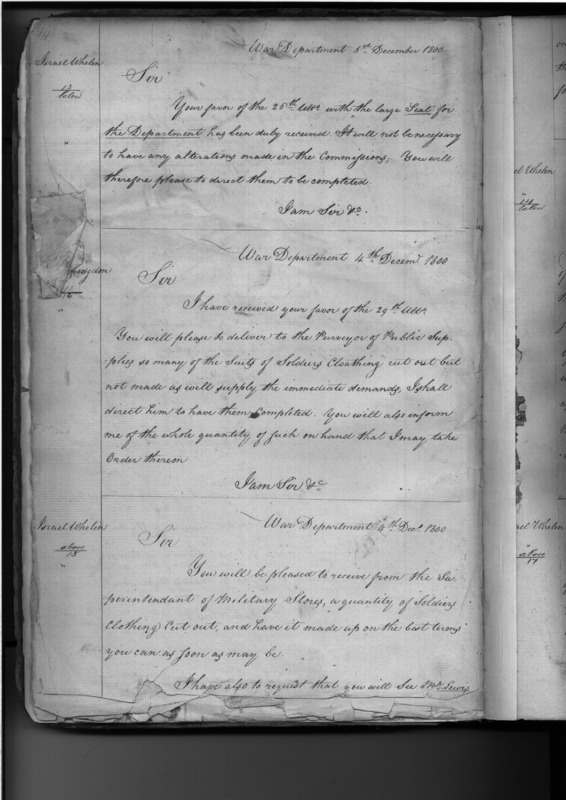 14
War Department 1st December 1800
Israel Whelen
Sir
Your favor of the 28th Ulto. with the large Seal for
the Department has been duly received. It will not be necessary
to have any alterations made in the Commissions; You will
therefore please to direct them to be completed.
I am Sir &c.
War Department 4th Decemr. 1800
Sir
I have received your favor of the 29th Ulto.
You will please to deliver to the Purveyor of Public Sup-
plies so many of the Suits of Soldiers Cloathing cut out but
not made as will supply the immediate demands, I shall
direct him to have them Completed. You will also inform
me of the whole quantity of such on hand that I may take
Order thereon
I am Sir &c
Israel Whelen
above
15
War Department 4th Decr. 1800
Sir
You will be pleased to receive from the Su-
perintendant of Military Stores, a quantity of Soldiers
Clothing Cut out, and have it made up on the best terms
you can as soon as may be.
I have also to request that you will See Mr. Lewis
el Whelen
ael Whelen
above
17